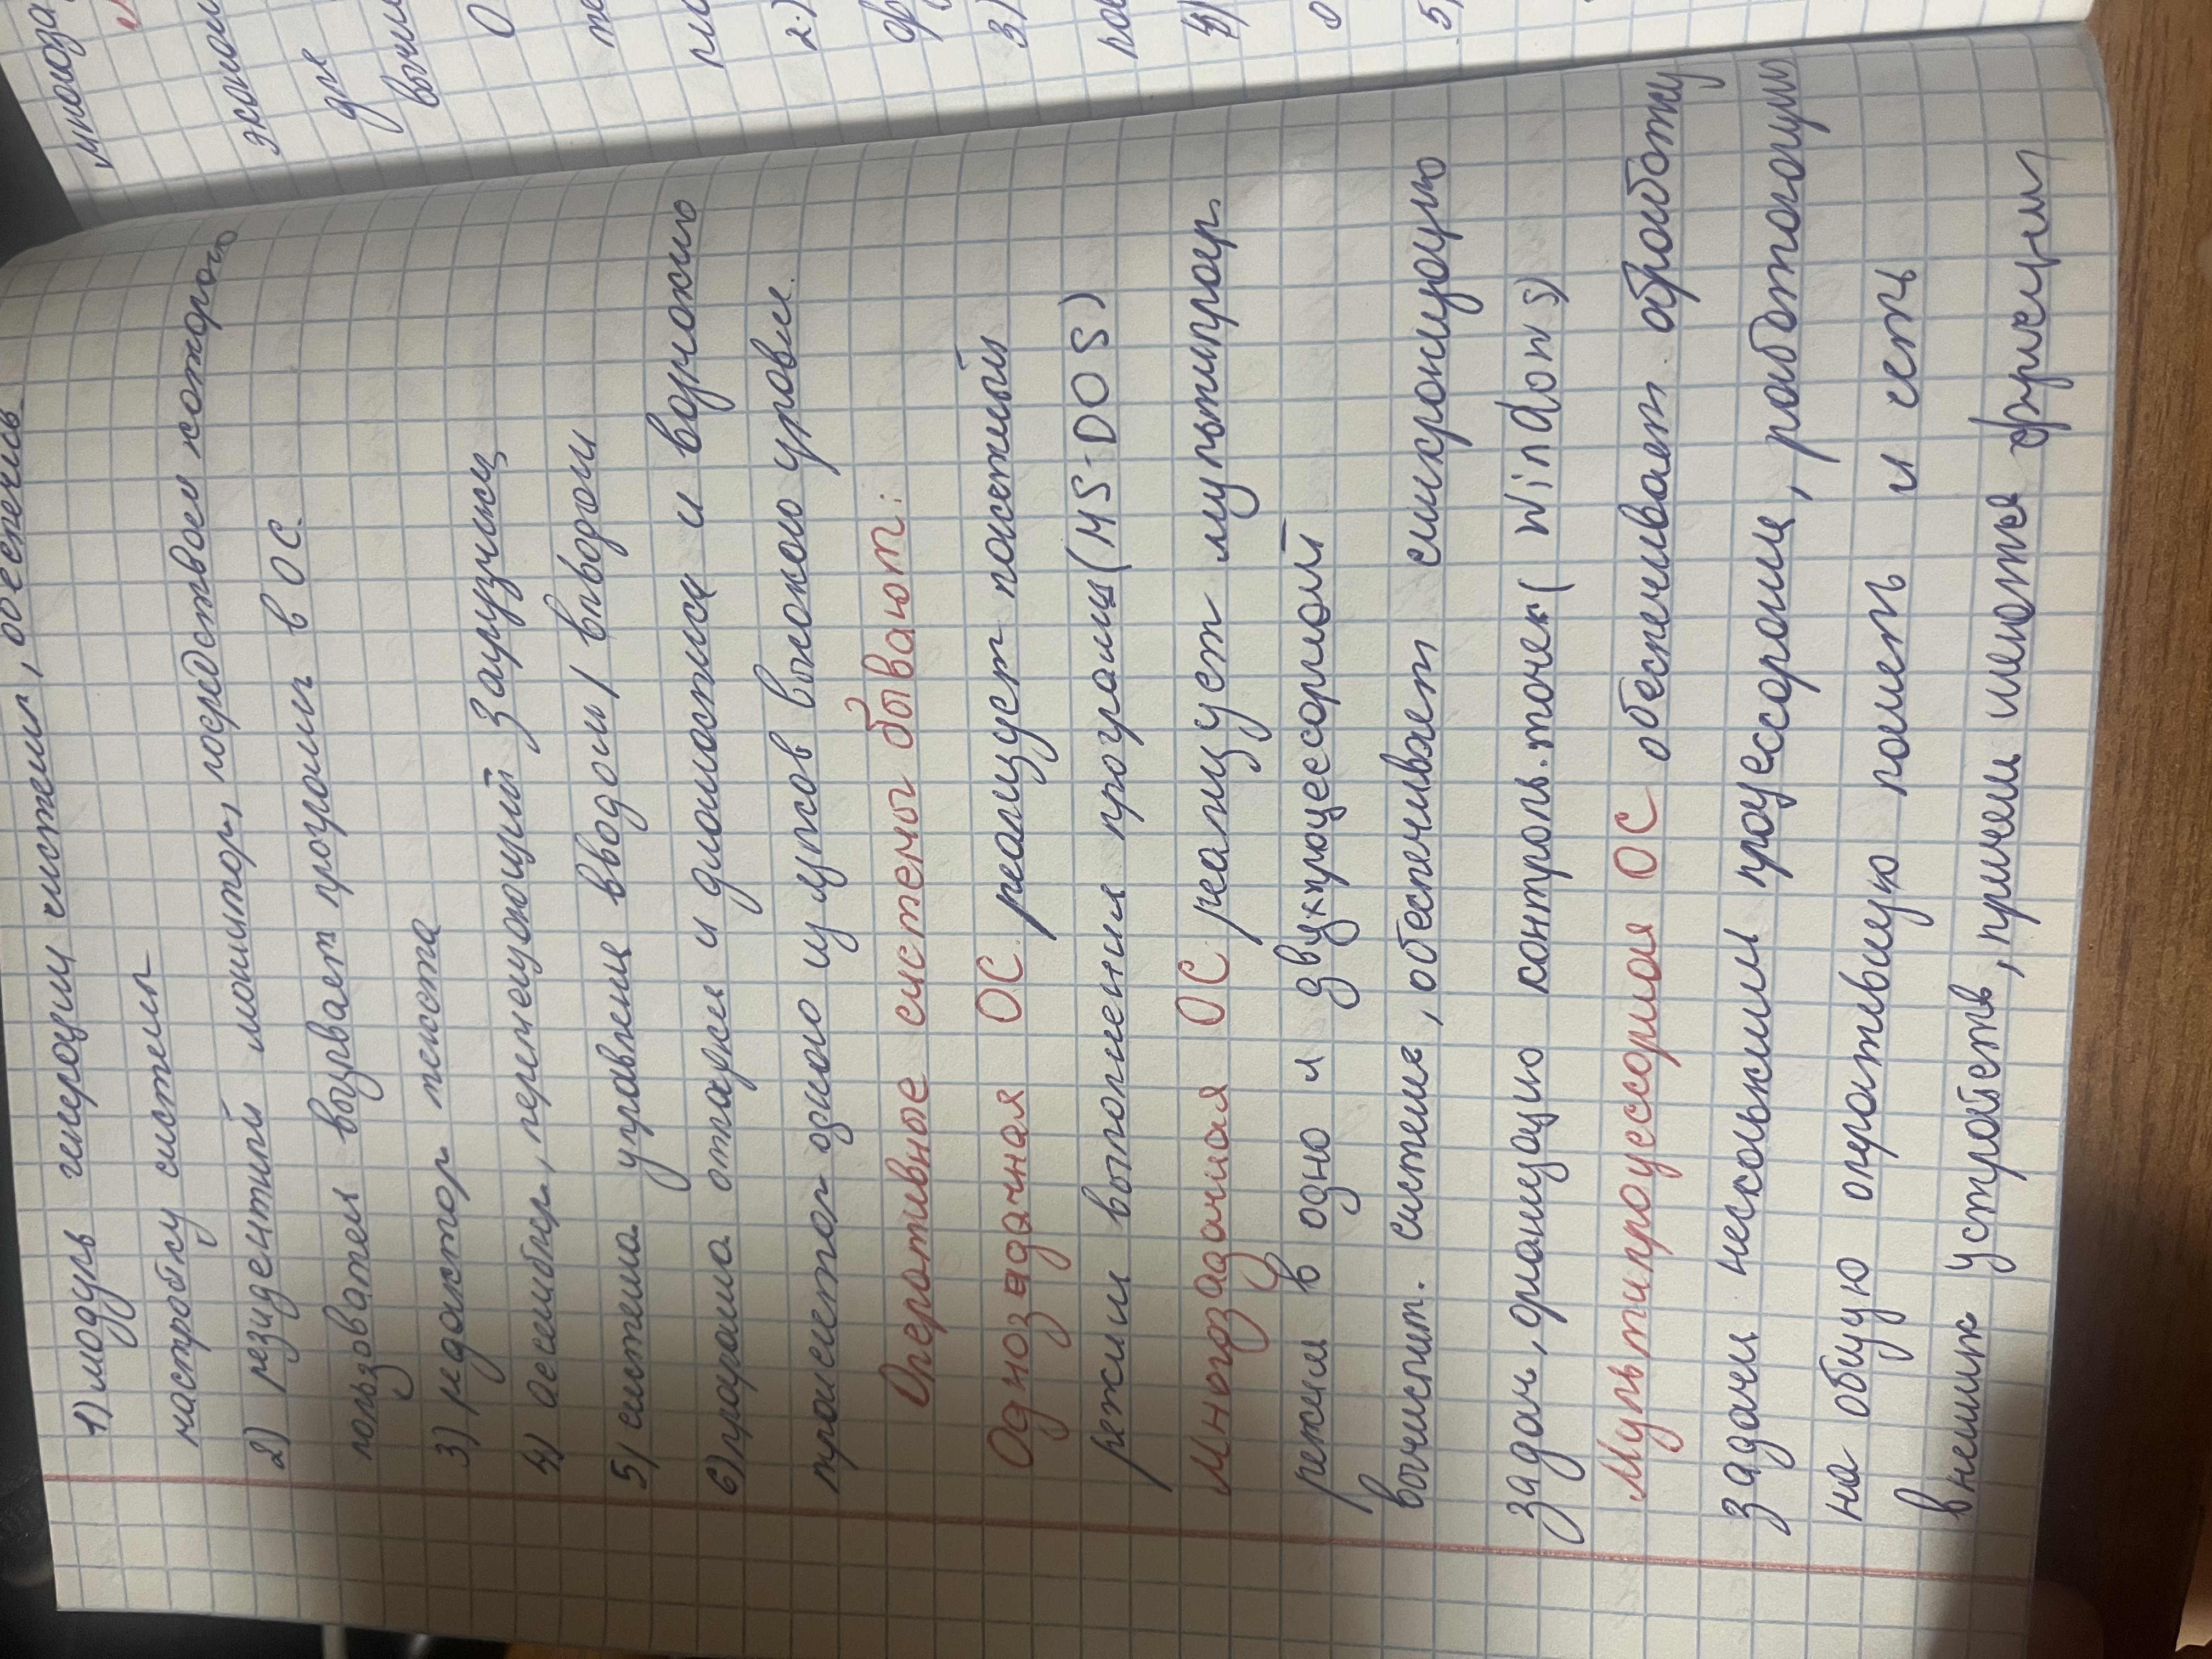 1) модуль генерации системы, обеспечив
настройку системы
2) резидентный монитор, посредством которого
пользователь вызывает програмы в ОС.
3) редактор текста
4) ассемблер, перемещающий загрузчик
5) система управления вводом / выводом
6) програма отладки и диагностики и
транслятор одного из языков высокого уровня.
Оперативные системы бывают:
Однозадачная ОС реализует пакетный
режим выполнения програмы (MS-DOS)
Многозадачная ОС реализует мультипрогр.
режим в одно и двухпроцессорной
вычислит. системе, обеспечивает синхронизацию
задач, организацию контроль. точек (Windows)
Мультипроцессорная ОС обеспечивает обработку
задачи несколькими процессорами, работающих
на общую оперативную память и сеть
внешних устройств, причем имеются функции